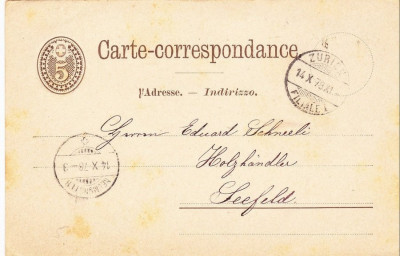 5
Carte-correspondance.
l'Adresse. — Indirizzo.
ZÜRICH
14 X 78
FILIALE
Herren Eduard Schneeli
Holzhändler
Seefeld.
14 X 78 - 8